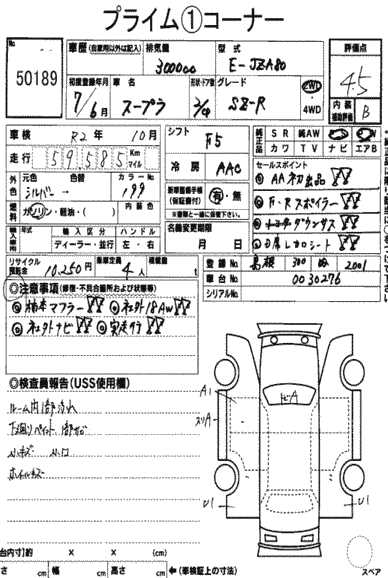 プライム①コーナー
No 50189
車歴 (自家用以外は記入) 排気量 3000cc 型式 E-JZA80
評価点 4.5
初度登録年月 7/6月 車名 スープラ 形状・ドア数 2/ グレード SZ-R 2WD 4WD
内装補助評価 B
車検 R2年10月 シフト F5
純正品 SR 純AW PS PW
カワ TV ナビ エアB
走行 59585 Km マイル
冷房 AAC
セールスポイント
◎AA初出品
◎F・Rスポイラー
外色 元色 シルバー→ 色替 カラーNo 199
新車整備手帳(保証書付) 有・無
※書類は後日にして保管して下さい。
燃料 ガソリン・軽油・( ) 内装色
名義変更期限 月 日
輸入車 輸入区分 ハンドル
ディーラー・並行 左・右
リサイクル預託金 10,250円 乗車定員 4人 積載量 t
登録No 島根 300 2001
車台No 0030276
シリアルNo
◎注意事項(修復・不具合箇所および状態等)
◎柿本マフラー ◎社外18AW
◎社外ナビ ◎実走行
◎検査員報告(USS使用欄)
ルーム内部汚れ
小キズ
ホイルキズ
A1
スリA
U1
U1
A
台内寸)約 × × (cm)
さ cm 幅 cm 高さ cm ←(車検証上の寸法)
スペア